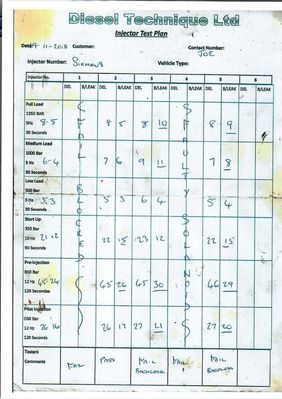 Diesel Technique Ltd
Injector Test Plan
Date: 9-11-2018 Customer: Contact Number:
JOE
Injector Number: SIEMENS Vehicle Type:
Injector No. 1 2 3 4 5 6
DEL B/LEAK DEL B/LEAK DEL B/LEAK DEL B/LEAK DEL B/LEAK DEL B/LEAK
Full Load
1350 BAR
5Hz 8-5 8 5 8 10 8 9
30 Seconds
Medium Load
1000 Bar
5 Hz 6-4 7 6 9 11 7 8
30 Seconds
Low Load
500 Bar
5 Hz 3-3 5 3 6 4 5 4
30 Seconds
Start Up
350 Bar
10 Hz 21-12 22 15 23 12 22 15
30 Seconds
Pre-Injection
800 Bar
12 Hz 45-24 45 26 45 30 46 29
120 Seconds
Pilot Injection
600 Bar
12 Hz 26-16 26 17 27 21 27 20
120 Seconds
FAIL BLOCKED
FAULTY
Testers
Comments FAIL PASS FAIL FAIL FAIL
BACKLEAK BACKLEAK